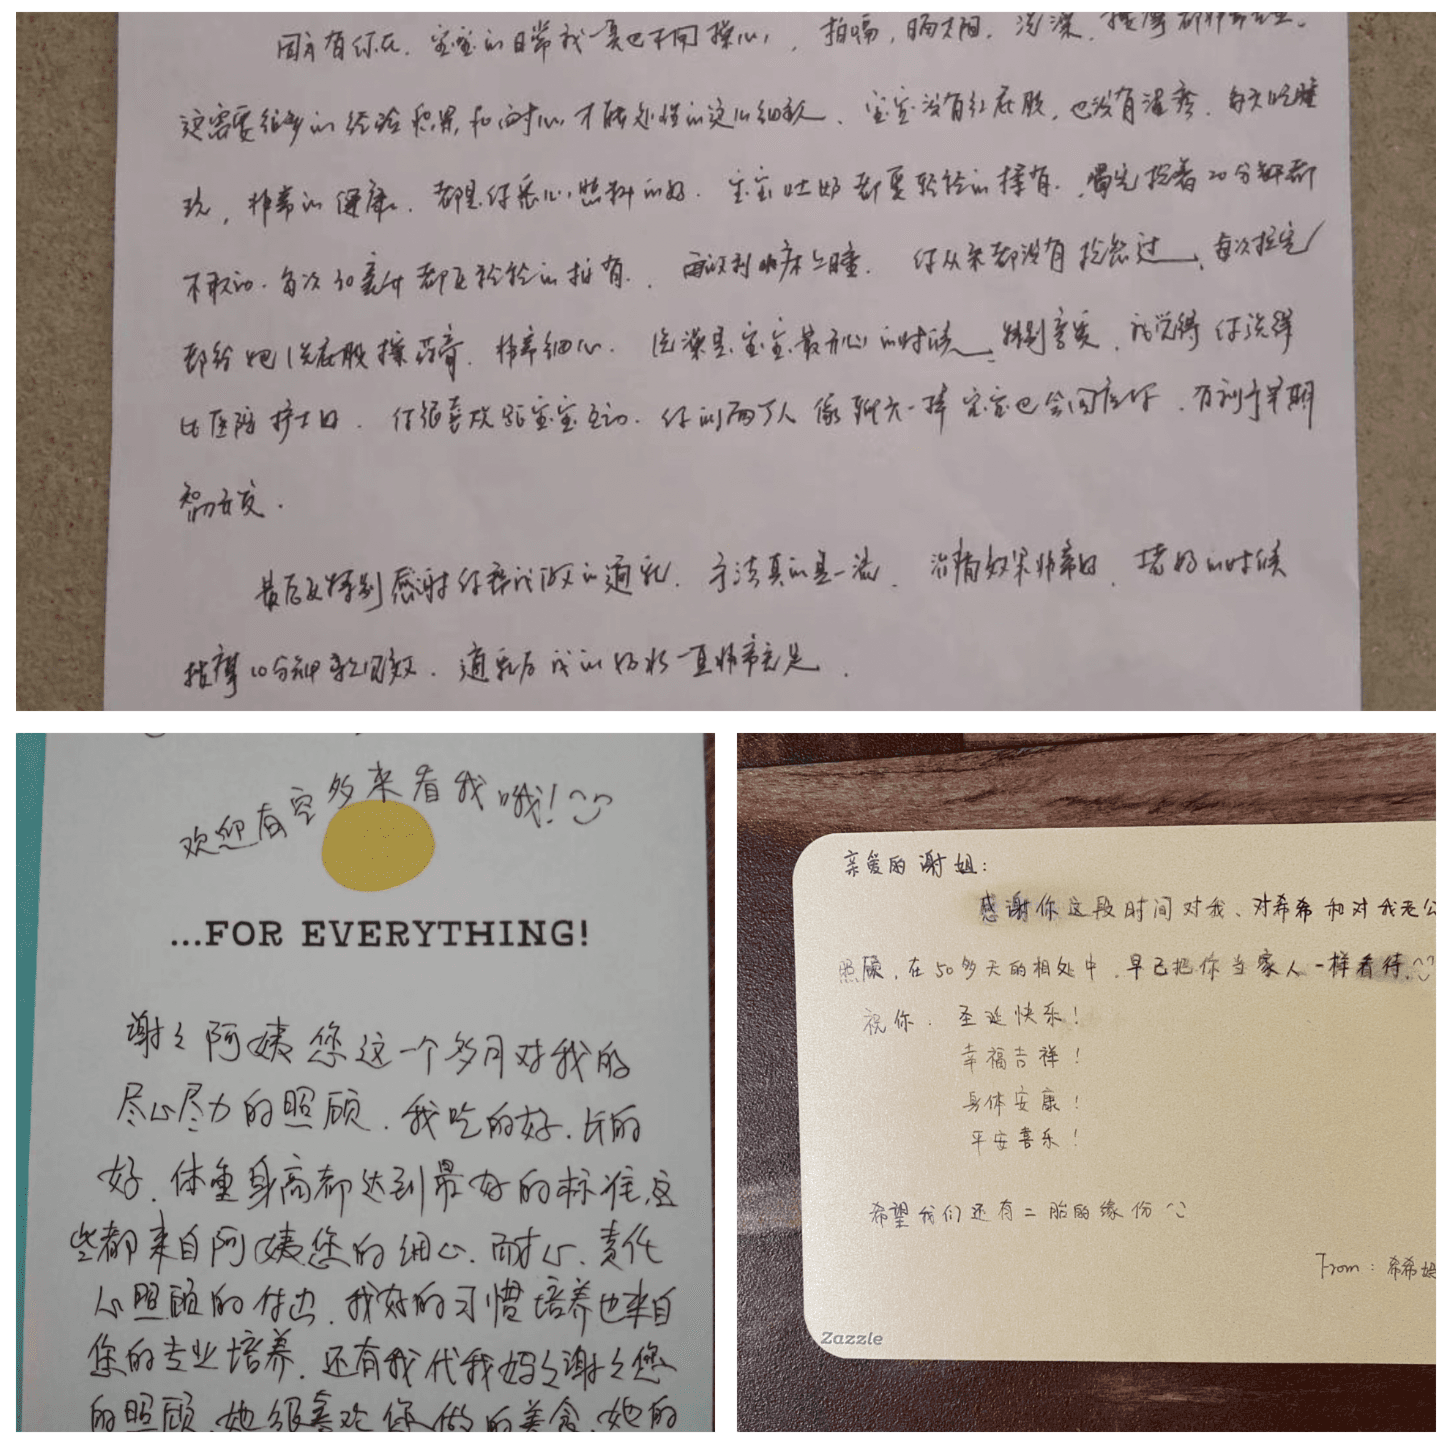 因为有你在，宝宝的日常我一点也不用操心，拍嗝，晒太阳，洗澡，按摩都非常专业。
这需要很多的经验积累和耐心才能处理的这么细致，宝宝没有红屁股，也没有湿疹，每天吃睡
玩，非常的健康，都是你悉心照料的好，宝宝吐奶都要轻轻的揉背，喝完抱着20分钟都
不敢动，每次30毫升都要轻轻的拍背，再放到小床上睡，你从来都没有抱怨过，每次拉完
都给她洗屁股擦药膏，非常细心，洗澡是宝宝最开心的时候，特别享受，我觉得你洗得
比医院护士好，你很喜欢跟宝宝互动，你们两个人像聊天一样宝宝也会回应你，有利于早期
智力开发。
最后要特别感谢你帮我做的通乳，手法真的是一流，效果非常好，堵奶的时候
按摩10分钟就有效，通乳后我的奶水一直非常充足。
欢迎有空多来看我哦！
...FOR EVERYTHING!
谢谢阿姨您这一个多月对我的
尽心尽力的照顾，我吃的好，长的
好，体重身高都达到最好的标准，这
些都来自阿姨您的细心，耐心，责任
心照顾的付出，我好的习惯培养也来自
您的专业培养，还有我代我妈妈谢谢您
的照顾，她很喜欢您做的美食，她的
亲爱的谢姐：
感谢你这段时间对我、对希希和对我老公
照顾，在50多天的相处中，早已把你当家人一样看待。
祝你：圣诞快乐！
幸福吉祥！
身体安康！
平安喜乐！
希望我们还有二胎的缘份
From：希希妈
Zazzle